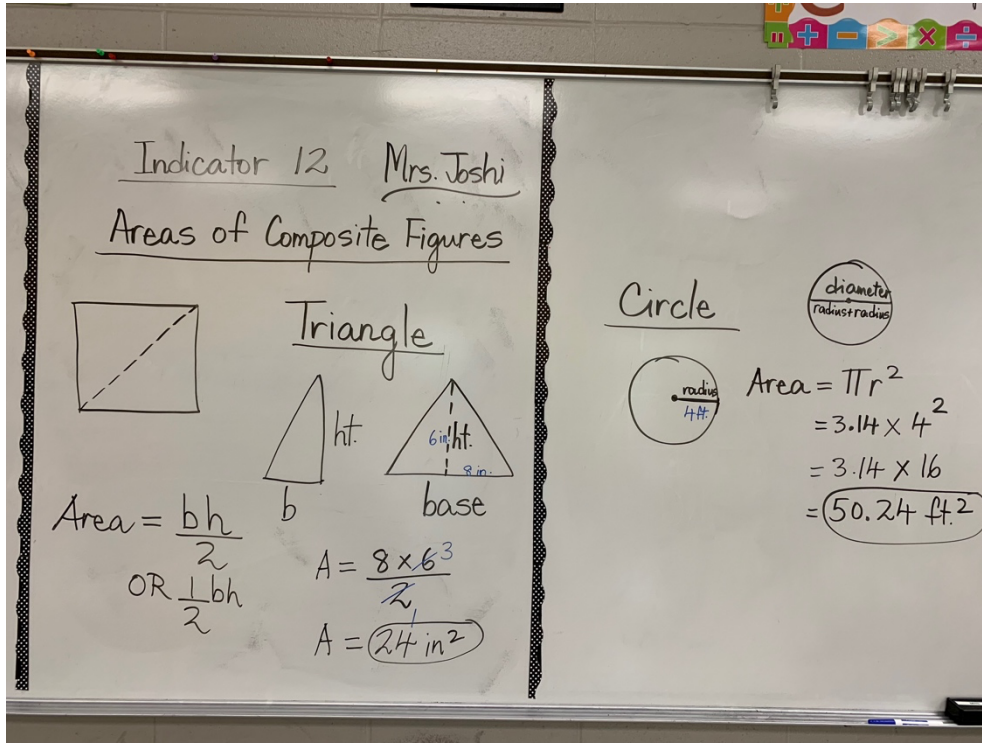 = + − > × ÷
Indicator 12 Mrs. Joshi
Areas of Composite Figures
Triangle
ht.
6 in. ht.
8 in.
b base
Area = bh/2
OR 1/2 bh
A = 8 × 6 3 / 2 1
A = 24 in²
Circle
diameter
radius+radius
radius
4 ft.
Area = πr²
= 3.14 × 4²
= 3.14 × 16
= 50.24 ft.²